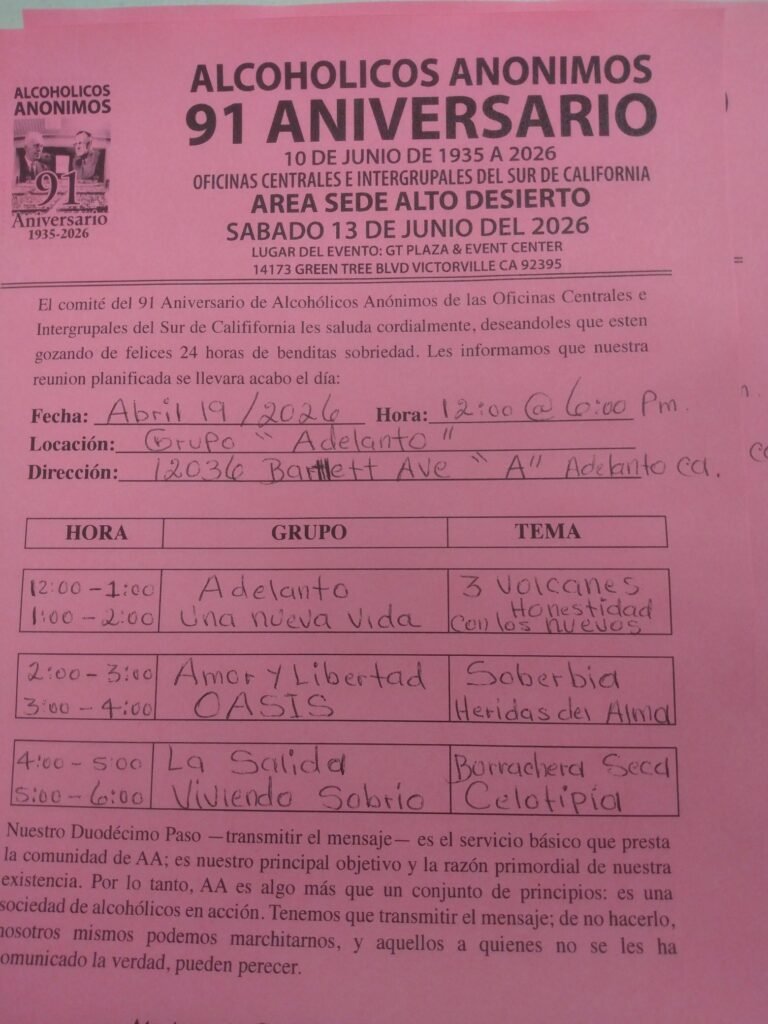 ALCOHOLICOS
ANONIMOS
91
Aniversario
1935-2026
ALCOHOLICOS ANONIMOS
91 ANIVERSARIO
10 DE JUNIO DE 1935 A 2026
OFICINAS CENTRALES E INTERGRUPALES DEL SUR DE CALIFORNIA
AREA SEDE ALTO DESIERTO
SABADO 13 DE JUNIO DEL 2026
LUGAR DEL EVENTO: GT PLAZA & EVENT CENTER
14173 GREEN TREE BLVD VICTORVILLE CA 92395
El comité del 91 Aniversario de Alcohólicos Anónimos de las Oficinas Centrales e
Intergrupales del Sur de Calififornia les saluda cordialmente, deseandoles que esten
gozando de felices 24 horas de benditas sobriedad. Les informamos que nuestra
reunion planificada se llevara acabo el día:
Fecha: Abril 19/2026 Hora: 12:00 @ 6:00 Pm.
Locación: Grupo "Adelanto"
Dirección: 12036 Bartlett Ave "A" Adelanto ca.
HORA GRUPO TEMA
12:00 - 1:00 Adelanto 3 Volcanes
1:00 - 2:00 Una nueva vida Honestidad
Con los nuevos
2:00 - 3:00 Amor y Libertad Soberbia
3:00 - 4:00 OASIS Heridas del Alma
4:00 - 5:00 La Salida Borrachera Seca
5:00 - 6:00 Viviendo Sobrio Celotipia
Nuestro Duodécimo Paso —transmitir el mensaje— es el servicio básico que presta
la comunidad de AA; es nuestro principal objetivo y la razón primordial de nuestra
existencia. Por lo tanto, AA es algo más que un conjunto de principios: es una
sociedad de alcohólicos en acción. Tenemos que transmitir el mensaje; de no hacerlo,
nosotros mismos podemos marchitarnos, y aquellos a quienes no se les ha
omunicado la verdad, pueden perecer.